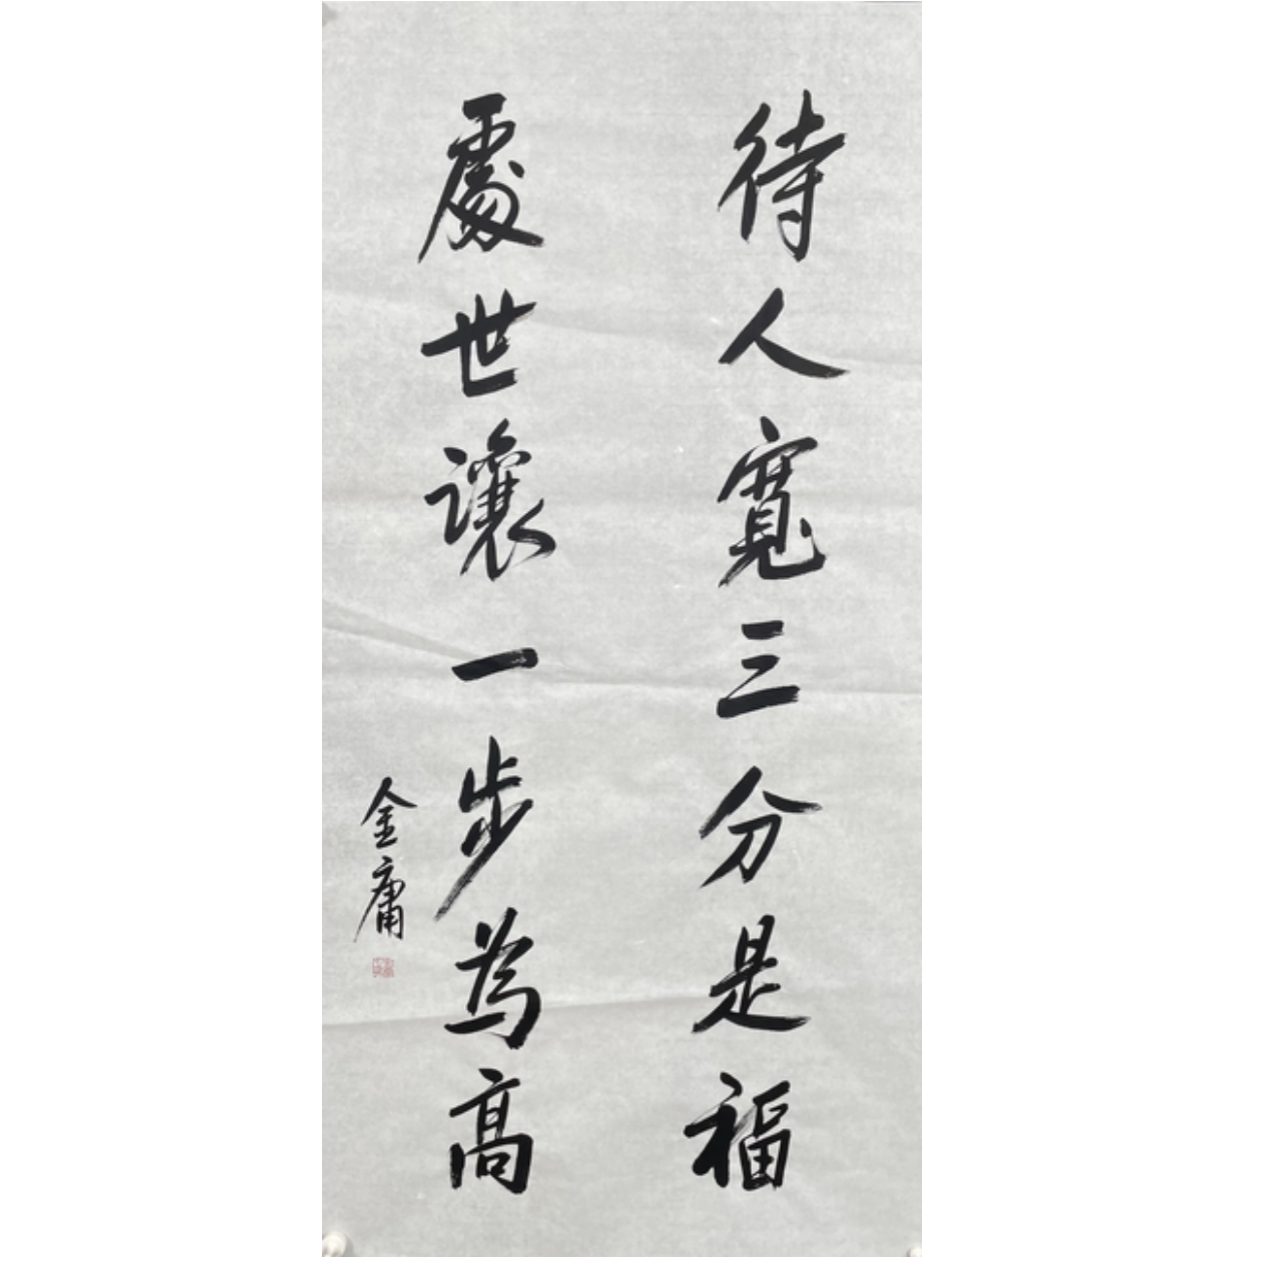 待人寬三分是福
處世讓一步為高
金庸